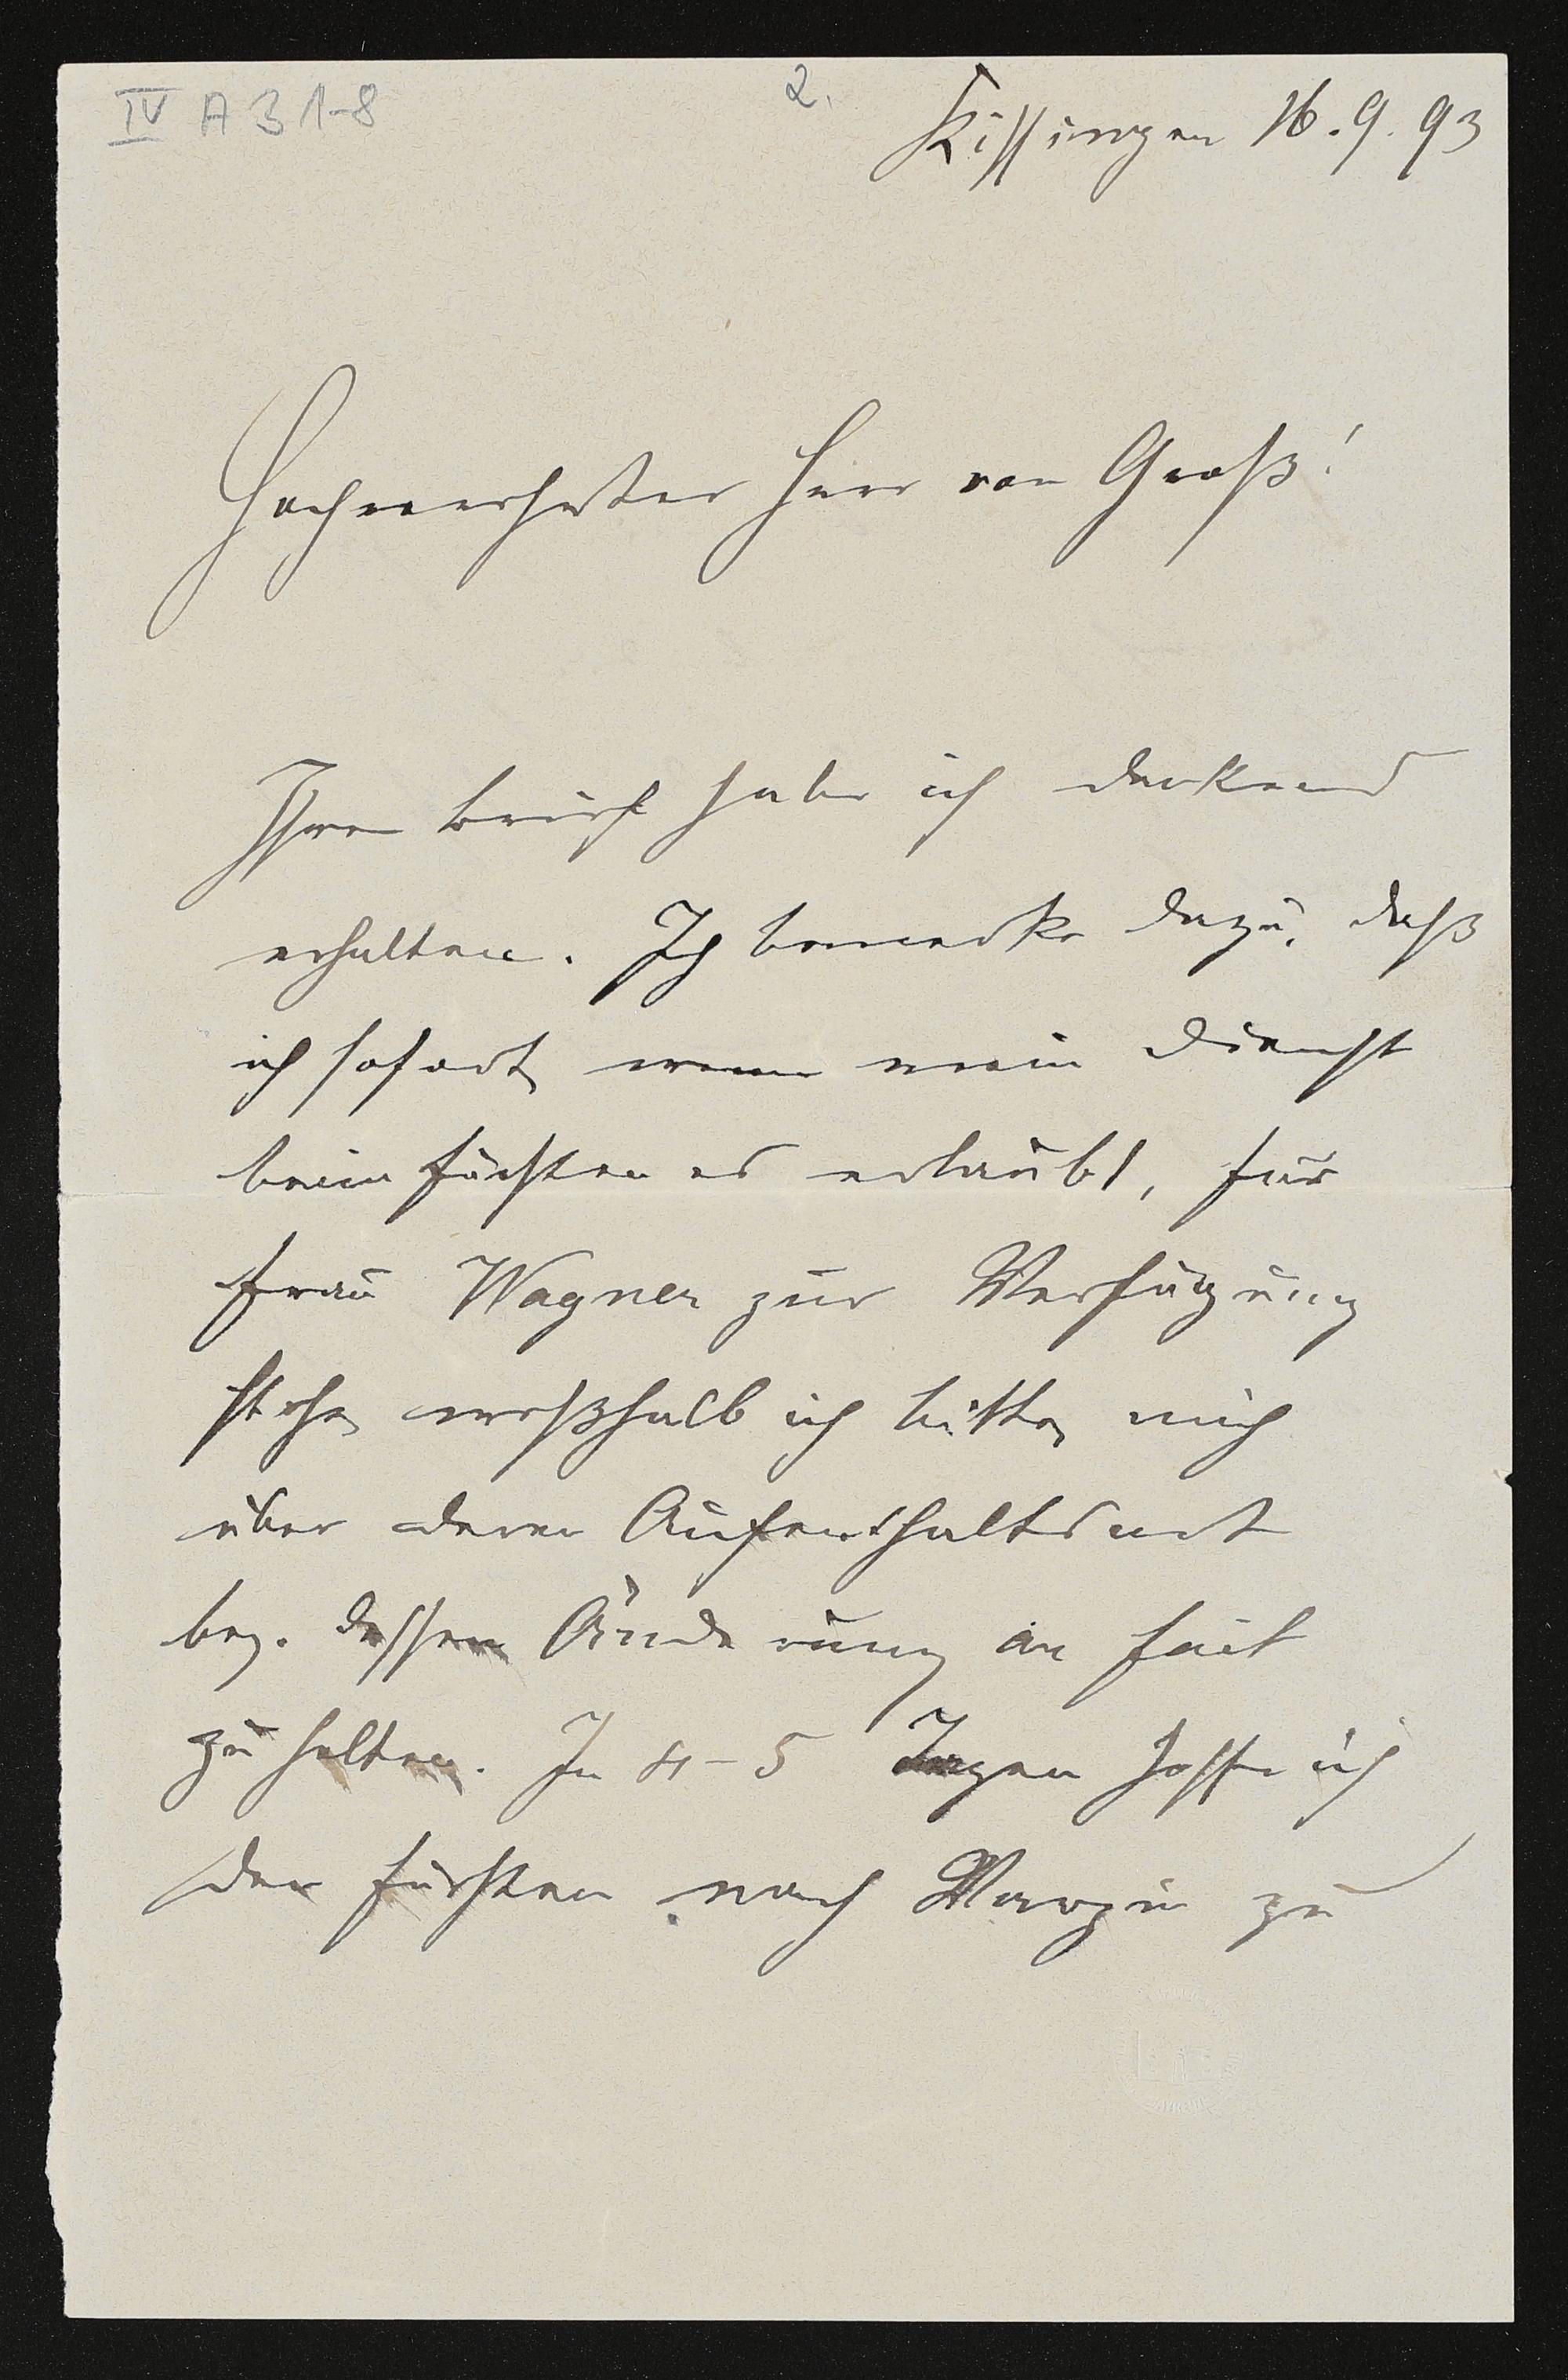 IV A 3 1-8
2.
Kissingen 16.9.93
Hochverehrter Herr von Groß!
Ihren Brief habe ich dankend
erhalten. Ich bemerke dazu, daß
ich sofort, wenn mein Dienst
beim Fürsten es erlaubt, für
Frau Wagner zur Verfügung
stehe, weßhalb ich bitte, mich
über deren Aufenthaltsort
bez. dessen Änderung au fait
zu halten. In 4-5 Tagen hoffe ich
den Fürsten nach Varzin zu